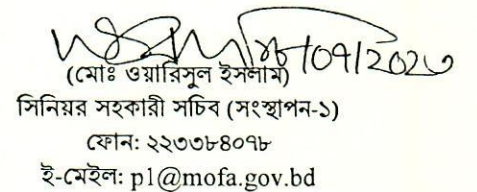 /০৭/২০২৩
(মোঃ ওয়ারিসুল ইসলাম)
সিনিয়র সহকারী সচিব (সংস্থাপন-১)
ফোন: ২২৩৩৮৪০৭৮
ই-মেইল: p1@mofa.gov.bd